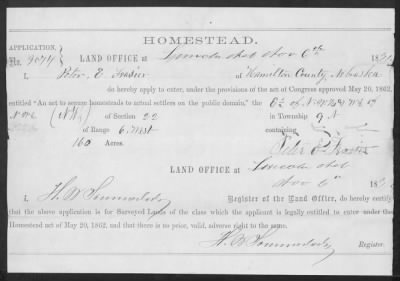 HOMESTEAD.
APPLICATION. LAND OFFICE at Lincoln Neb Nov 6th 187
No. 9074
I, Peter E. Frasier of Hamilton County, Nebraska
do hereby apply to enter, under the provisions of the act of Congress approved May 20, 1862,
entitled "An act to secure homesteads to actual settlers on the public domain," the
of Section 22 in Township 9 N
of Range 6 West containing
160 Acres.
LAND OFFICE at Lincoln Neb
Nov 6th 187
I, Register of the Land Office, do hereby certify
that the above application is for Surveyed Lands of the class which the applicant is legally entitled to enter under the
Homestead act of May 20, 1862, and that there is no prior, valid, adverse right to the same.
Register.